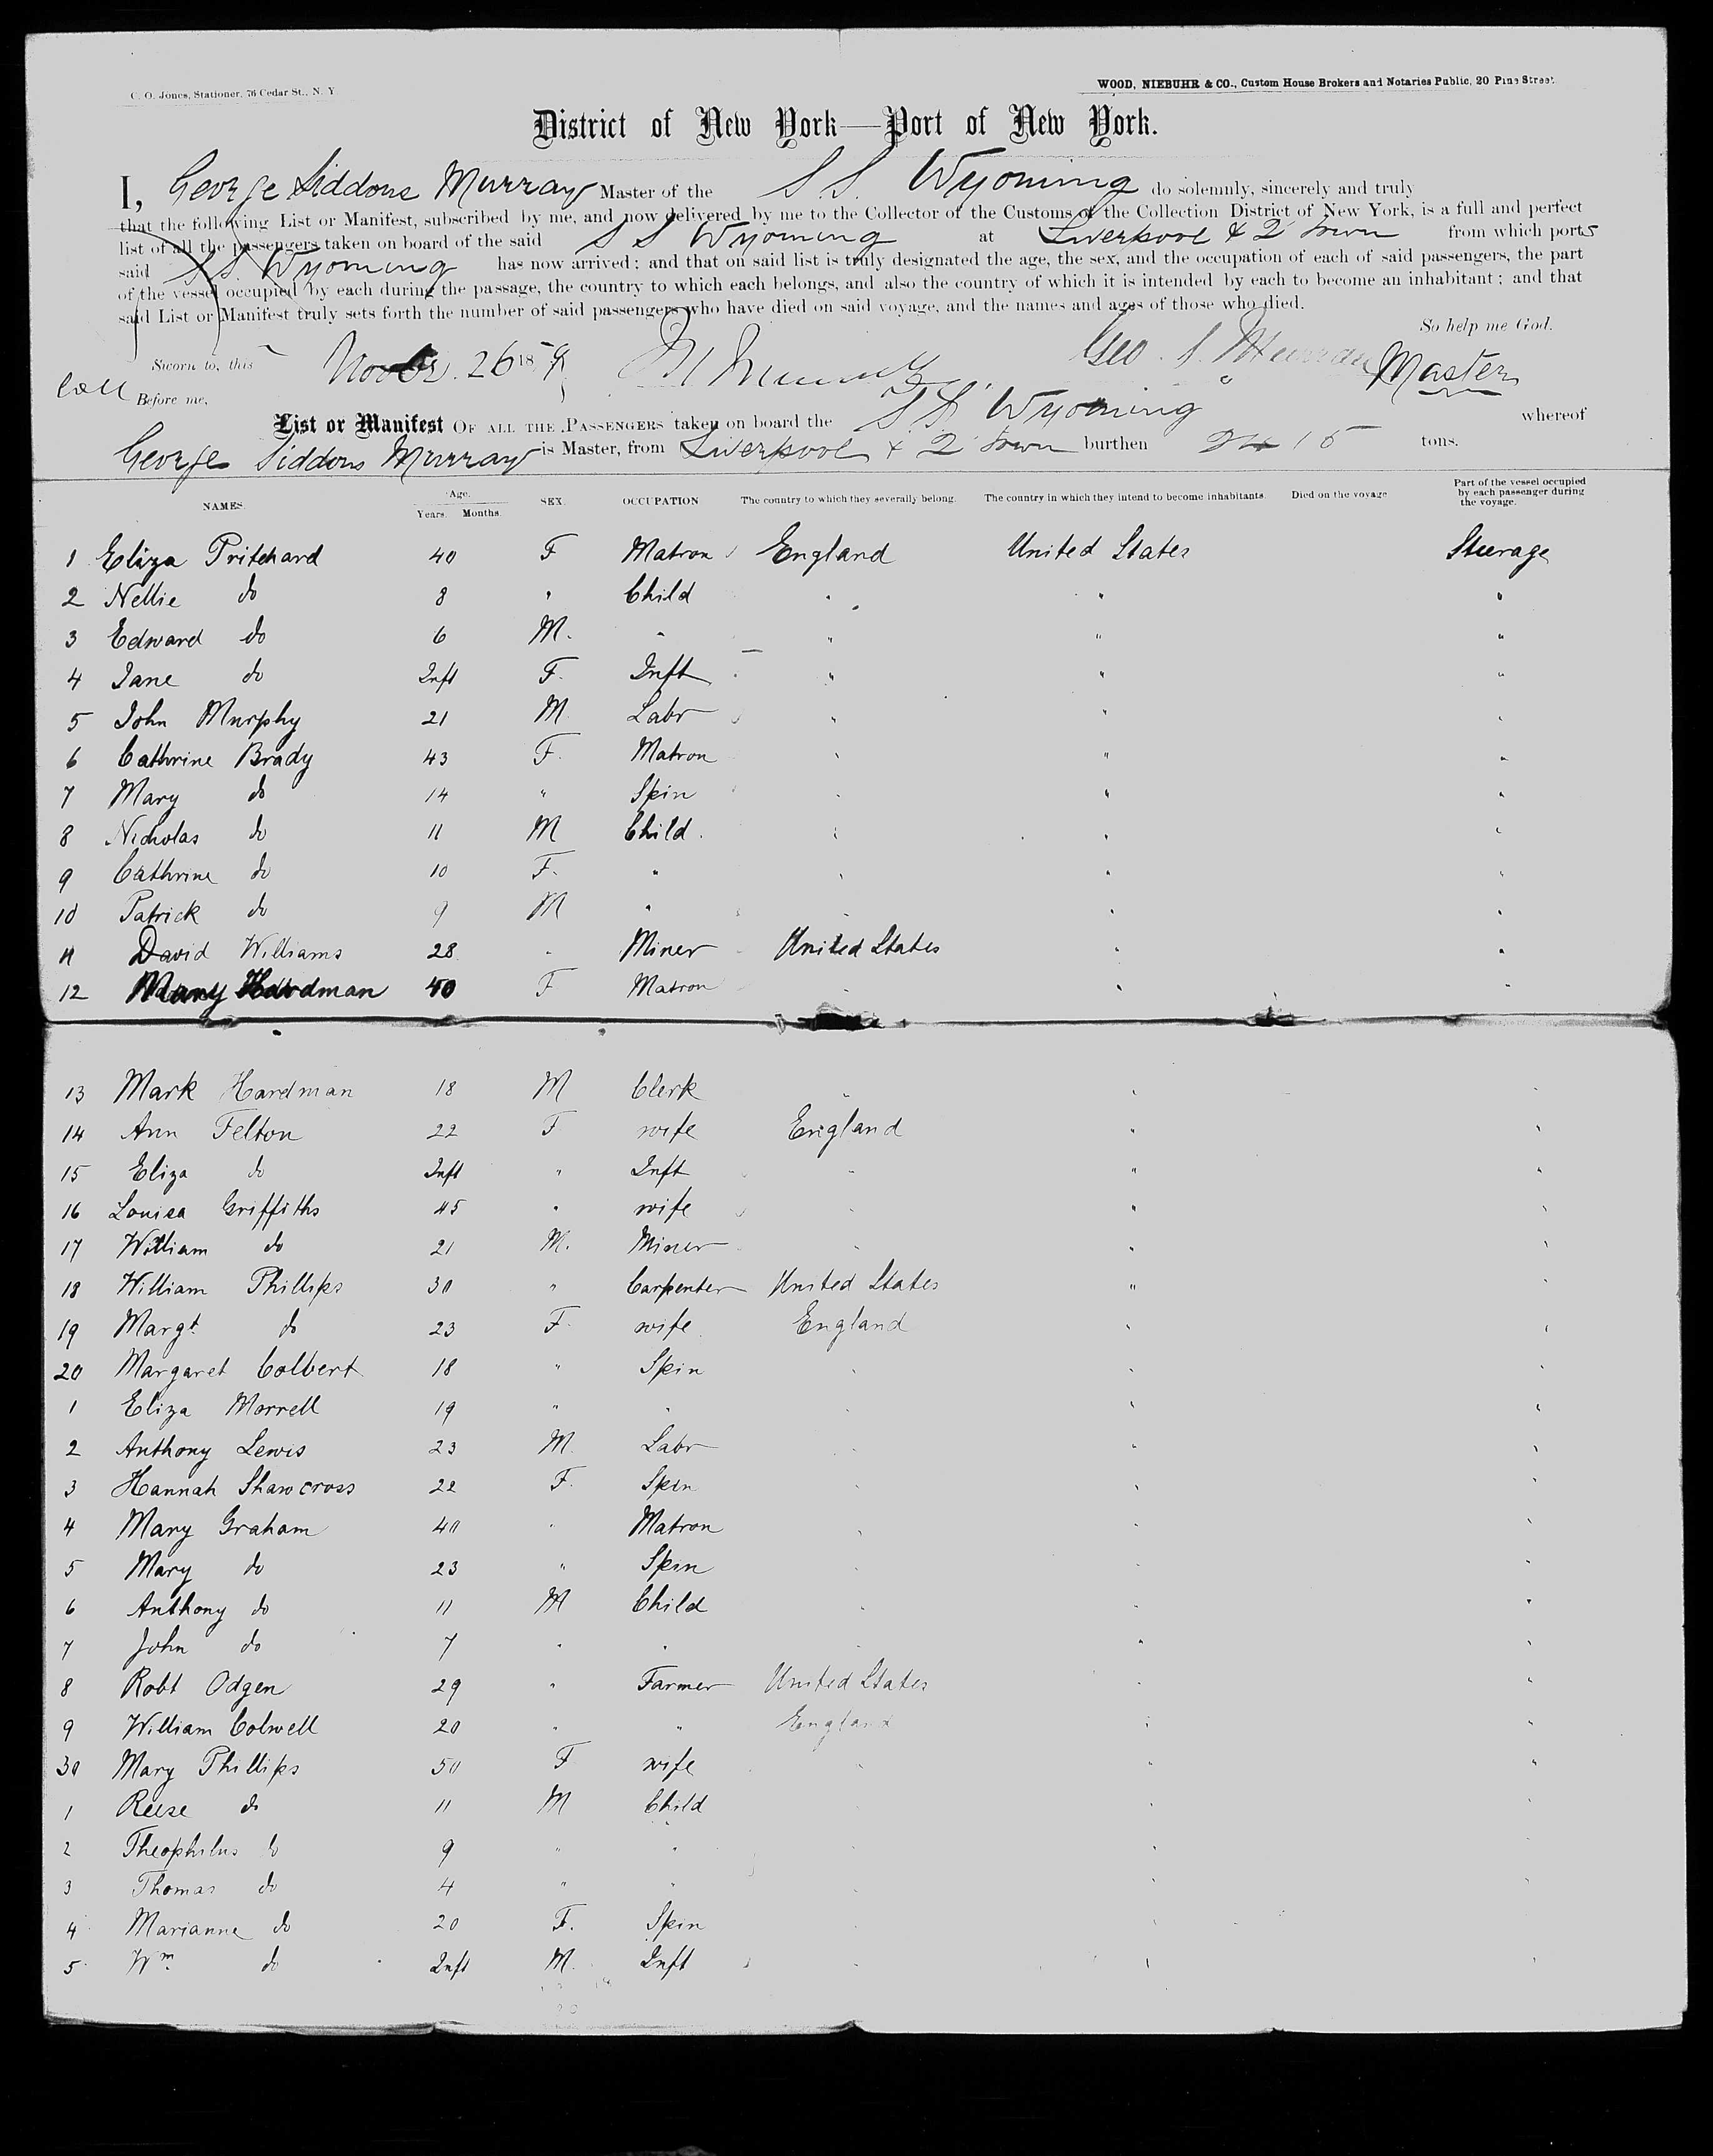 C. O. Jones, Stationer, 76 Cedar St., N. Y.
WOOD, NIEBUHR & CO., Custom House Brokers and Notaries Public, 20 Pine Street
District of New York—Port of New York.
I, George Siddons Murray Master of the S. S. Wyoming do solemnly, sincerely and truly
that the following List or Manifest, subscribed by me, and now delivered by me to the Collector of the Customs of the Collection District of New York, is a full and perfect
list of all the passengers taken on board of the said S S Wyoming at Liverpool & Q Town from which ports
said S.S. Wyoming has now arrived; and that on said list is truly designated the age, the sex, and the occupation of each of said passengers, the part
of the vessel occupied by each during the passage, the country to which each belongs, and also the country of which it is intended by each to become an inhabitant; and that
said List or Manifest truly sets forth the number of said passengers who have died on said voyage, and the names and ages of those who died.
So help me God.
Sworn to, this 26 187 Geo. S. Murray Master
Before me,
List or Manifest OF ALL THE PASSENGERS taken on board the S S Wyoming whereof
George Siddons Murray is Master, from Liverpool & Q Town burthen tons.
NAMES. Age. Years. Months. SEX. OCCUPATION The country to which they severally belong. The country in which they intend to become inhabitants. Died on the voyage Part of the vessel occupied by each passenger during the voyage.
1 Eliza Pritchard 40 F Matron England United States Steerage
2 Nellie do 8 " Child " " "
3 Edward do 6 M. " " " "
4 Jane do Inft F. Inft " " "
5 John Murphy 21 M Labr " " "
6 Cathrine Brady 43 F. Matron " " "
7 Mary do 14 " Spin " " "
8 Nicholas do 11 M Child. " " "
9 Cathrine do 10 F. " " " "
10 Patrick do 9 M " " " "
11 David Williams 28 " Miner United States " "
12 Mary Hardman 40 F Matron " " "
13 Mark Hardman 18 M Clerk " " "
14 Ann Felton 22 F wife England " "
15 Eliza do Inft " Inft " " "
16 Louisa Griffiths 45 " wife " " "
17 William do 21 M. Miner " " "
18 William Phillips 30 " Carpenter United States " "
19 Margt do 23 F. wife England " "
20 Margaret Colbert 18 " Spin " " "
1 Eliza Morrell 19 " " " " "
2 Anthony Lewis 23 M. Labr " " "
3 Hannah Shawcross 22 F. Spin " " "
4 Mary Graham 40 " Matron " " "
5 Mary do 23 " Spin " " "
6 Anthony do 11 M Child " " "
7 John do 7 " " " " "
8 Robt Odgen 29 " Farmer United States " "
9 William Colwell 20 " " England " "
30 Mary Phillips 50 F wife " " "
1 Reese do 11 M Child " " "
2 Theophilus do 9 " " " " "
3 Thomas do 4 " " " " "
4 Marianne do 20 F. Spin " " "
5 Wm do Inft M. Inft " " "